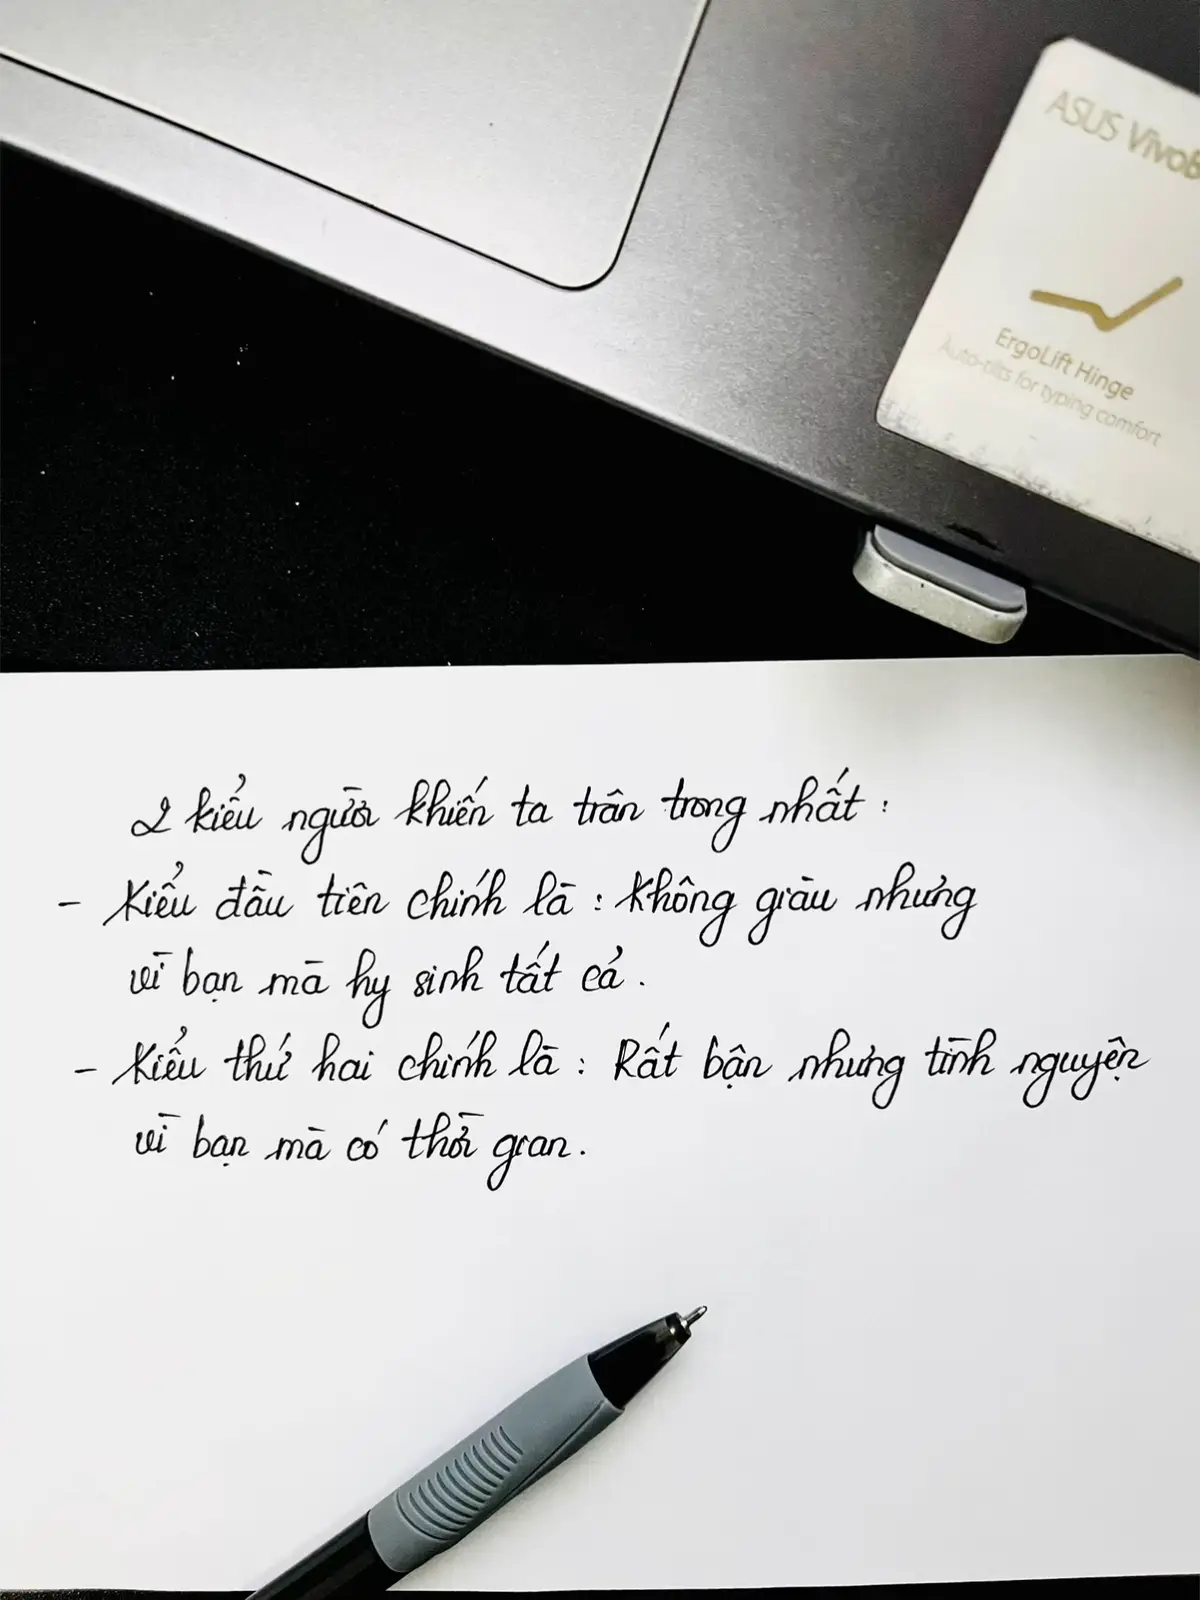 ASUS VivoB
ErgoLift Hinge
Auto-tilts for typing comfort
2 kiểu người khiến ta trân trong nhất :
- Kiểu đầu tiên chính là : Không giàu nhưng
vì bạn mà hy sinh tất cả.
- Kiểu thứ hai chính là : Rất bận nhưng tình nguyện
vì bạn mà có thời gian.